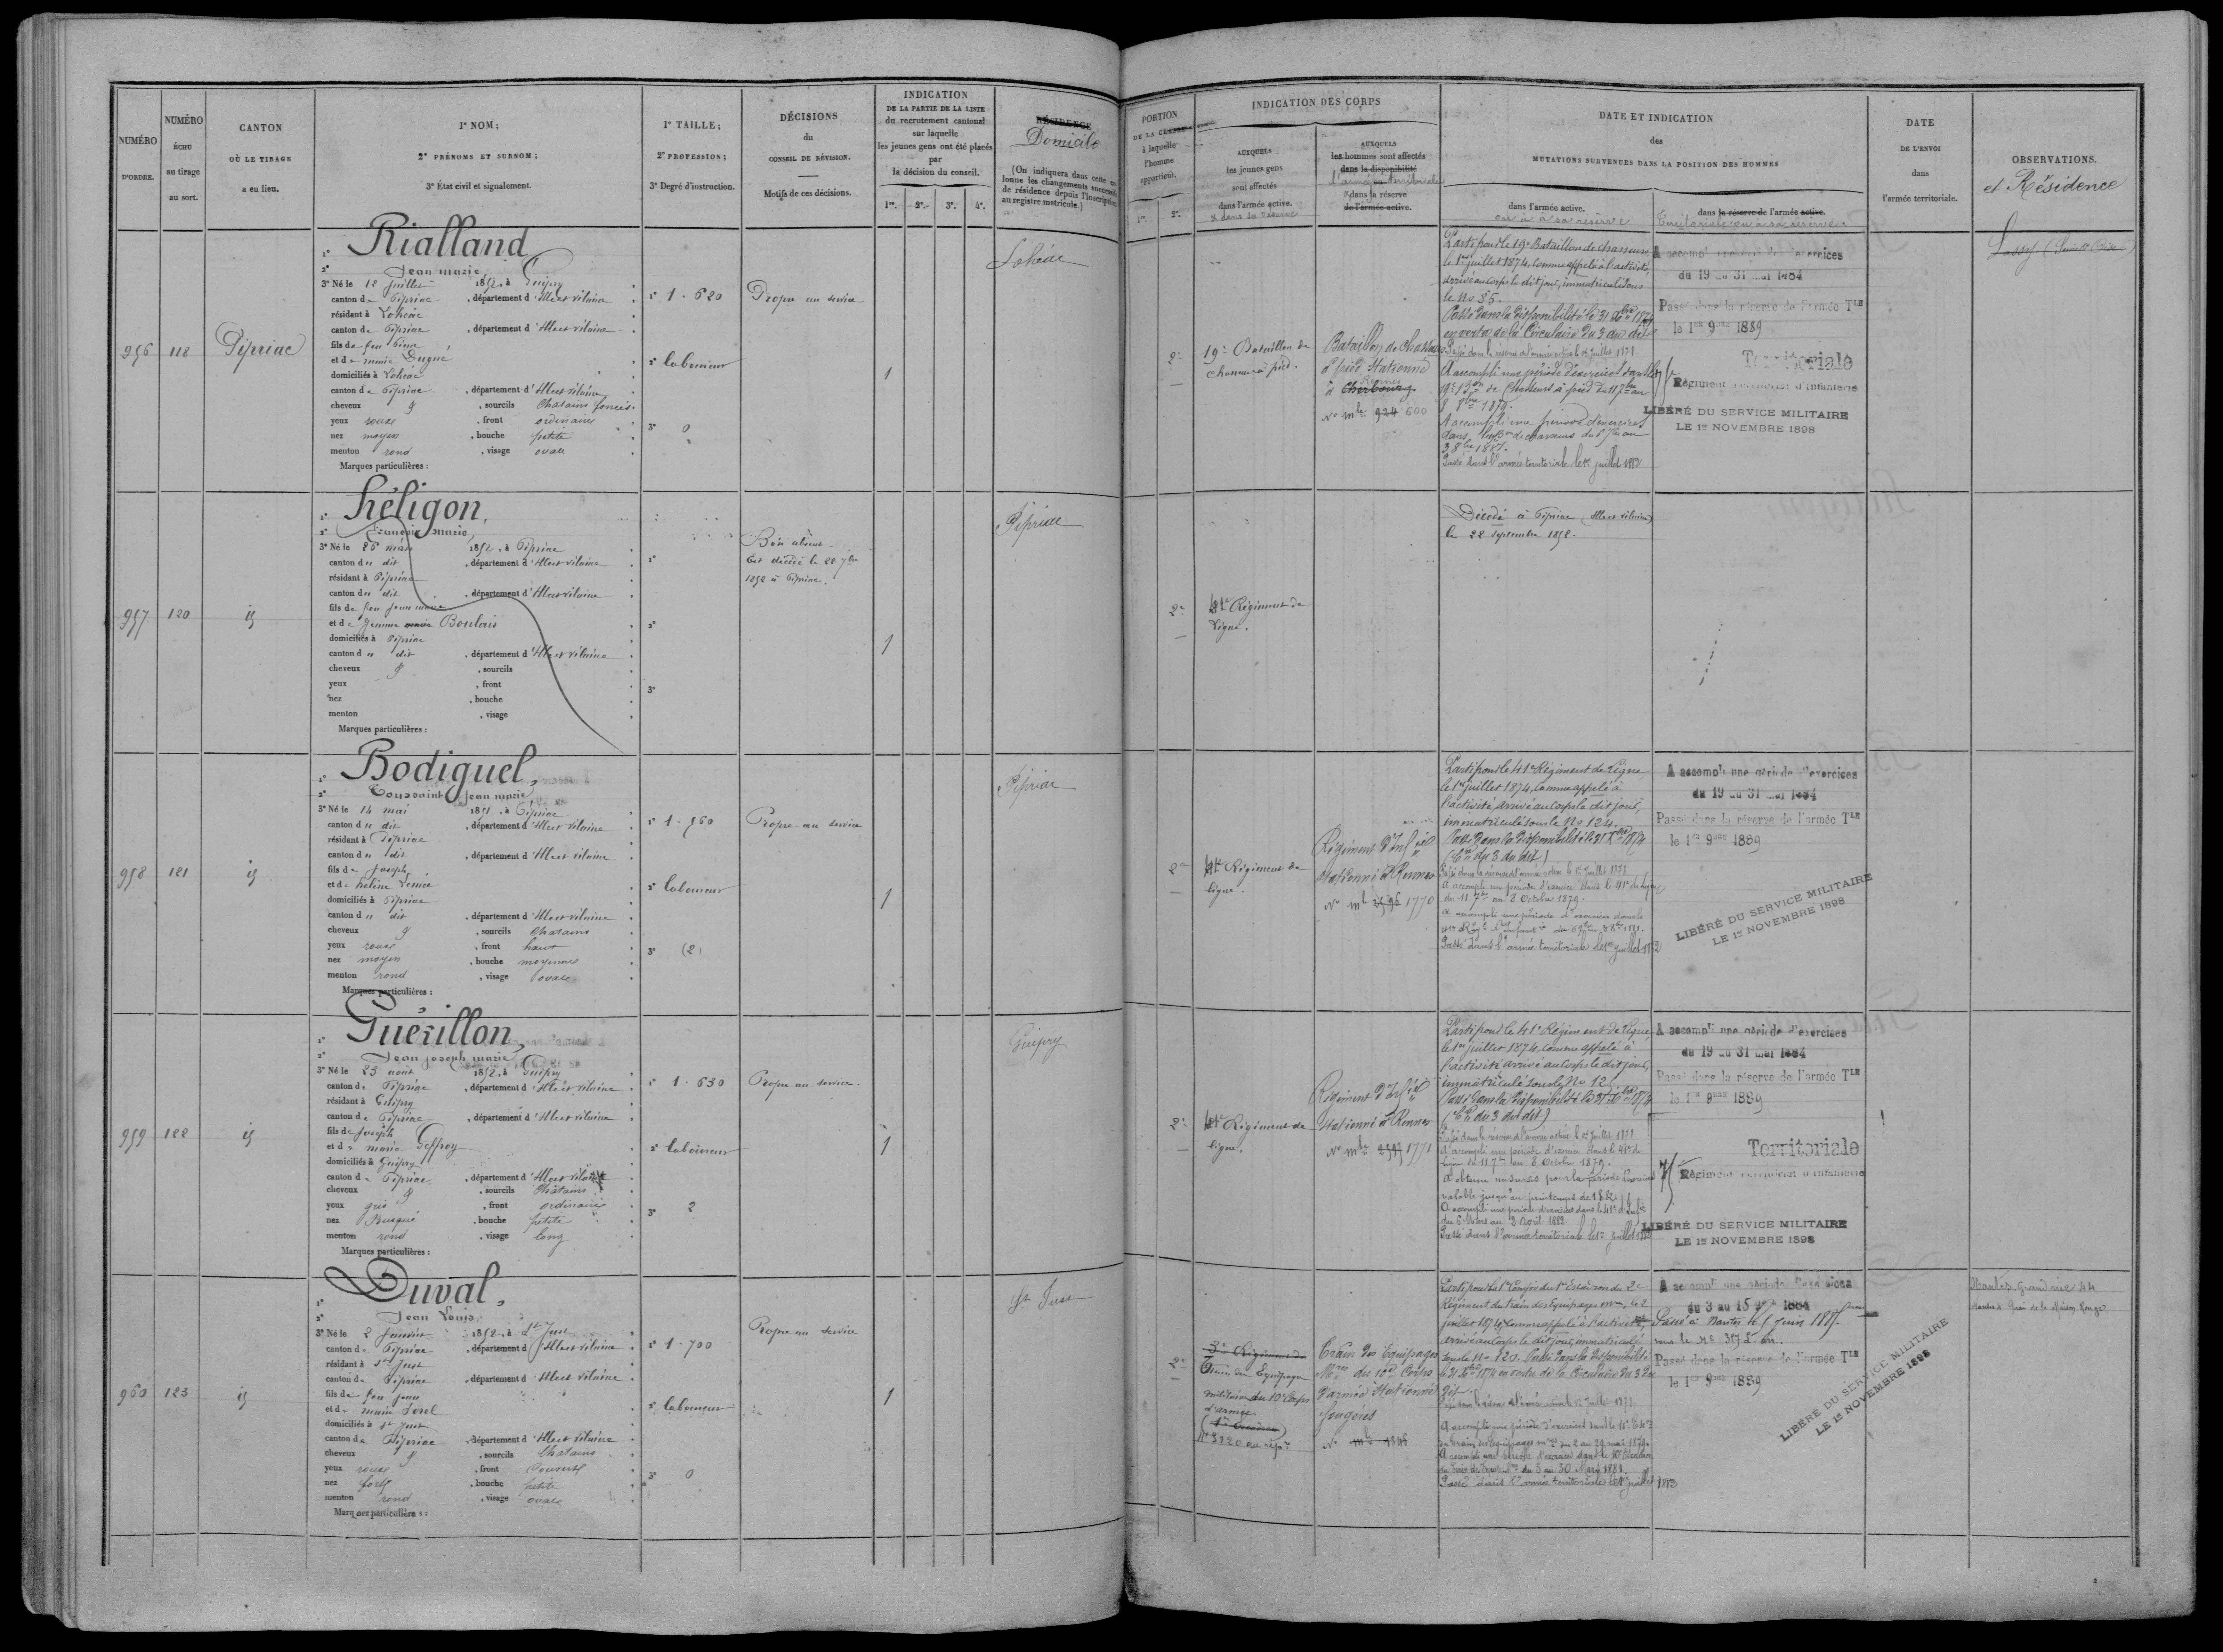 NUMÉRO
D'ORDRE.
NUMÉRO
ÉCHU
au tirage
au sort.
CANTON
OÙ LE TIRAGE
a eu lieu.
1° NOM;
2° PRÉNOMS ET SURNOM;
3° État civil et signalement.
1° TAILLE;
2° PROFESSION;
3° Degré d'instruction.
DÉCISIONS
du
CONSEIL DE RÉVISION.
Motifs de ces décisions.
INDICATION
DE LA PARTIE DE LA LISTE
du recrutement cantonal
sur laquelle
les jeunes gens ont été placés
par
la décision du conseil.
1re. 2e. 3e. 4e.
RÉSIDENCE
Domicile
(On indiquera dans cette co-
lonne les changements successifs
de résidence depuis l'inscription
au registre matricule.)
956
118
Pipriac
1° Rialland
2° Jean marie
3° Né le 12 juillet 1852, à Guipry
canton de Pipriac, département d'Ille et vilaine
résidant à Lohéac
canton de Pipriac, département d'Ille et vilaine
fils de feu Pierre
et de marie Dugué
domiciliés à Lohéac
canton de Pipriac, département d'Ille et vilaine
cheveux, sourcils Chatains foncés
yeux roux, front ordinaire
nez moyen, bouche petite
menton rond, visage ovale
Marques particulières :
1° 1.620
2° laboureur
3° 0
Propre au service
1
Lohéac
957
120
id
1° Héligon,
2° François marie,
3° Né le 26 mars 1852, à Pipriac
canton du dit, département d'Ille et vilaine
résidant à Pipriac
canton du dit, département d'Ille et vilaine
fils de feu jean marie
et de Jeanne marie Boulais
domiciliés à Pipriac
canton du dit, département d'Ille et vilaine
cheveux, sourcils
yeux, front
nez, bouche
menton, visage
Marques particulières :
1°
2°
3°
Bon absent
Est décédé le 22 7bre
1852 à Pipriac.
1
Pipriac
958
121
id
1° Bodiguel,
2° Toussaint jean marie
3° Né le 14 mai 1852, à Pipriac
canton du dit, département d'Ille et vilaine
résidant à Pipriac
canton du dit, département d'Ille et vilaine
fils de Joseph
et de
domiciliés à Pipriac
canton du dit, département d'Ille et vilaine
cheveux, sourcils Chatains
yeux roux, front haut
nez moyen, bouche moyenne
menton rond, visage ovale
Marques particulières :
1° 1.560
2° laboureur
3° (2)
Propre au service
1
Pipriac
959
122
id
1° Guérillon,
2° Jean joseph marie,
3° Né le 23 août 1852, à Guipry
canton de Pipriac, département d'Ille et vilaine
résidant à Guipry
canton de Pipriac, département d'Ille et vilaine
fils de Joseph
et de marie Geffroy
domiciliés à Guipry
canton de Pipriac, département d'Ille et vilaine
cheveux, sourcils Châtains
yeux gris, front ordinaire
nez Busqué, bouche petite
menton rond, visage long
Marques particulières :
1° 1.630
2° laboureur
3° 2
Propre au service.
1
Guipry
960
123
id
1° Duval,
2° Jean Louis
3° Né le 2 Janvier 1852, à St Just
canton de Pipriac, département d'Ille et vilaine
résidant à St Just
canton de Pipriac, département d'Ille et vilaine
fils de feu jean
et de marie Sorel
domiciliés à St Just
canton de Pipriac, département d'Ille et vilaine
cheveux, sourcils Chatains
yeux roux, front Couvert
nez fort, bouche petite
menton rond, visage ovale
Marques particulières :
1° 1.700
2° laboureur
3° 0
Propre au service
1
St Just
PORTION
DE LA CLASSE
à laquelle
l'homme
appartient.
1re. 2e.
INDICATION DES CORPS
AUXQUELS
les jeunes gens
sont affectés
dans l'armée active.
& dans sa réserve
AUXQUELS
les hommes sont affectés
dans la disponibilité
l'armée territoriale
dans la réserve
de l'armée active.
DATE ET INDICATION
des
MUTATIONS SURVENUES DANS LA POSITION DES HOMMES
dans l'armée active.
ou à sa réserve
dans la réserve de l'armée active.
Territoriale ou à sa réserve
DATE
DE L'ENVOI
dans
l'armée territoriale.
OBSERVATIONS.
et Résidence
2e
19e Bataillon de
chasseurs à pied.
Bataillon de Chasseurs
à pied Stationné
à Cherbourg
Rennes
No mle 424 600
Parti pour le 19e Bataillon de chasseurs,
le 1er juillet 1874, comme appelé à l'activité,
arrivé au corps le dit jour, immatriculé sous
le No 85.
Passé dans la disponibilité le 31 Xbre 1874
en vertu de la Circulaire du 3 du dit
Passé dans la réserve de l'armée active le 1er Juillet 1878
A accompli une période d'exercices dans le
19e Bon de Chasseurs à pied du 11 7bre au
8 8bre 1879.
A accompli une période d'exercices
dans le Bon de chasseurs du 6 7bre au
3 8bre 1881.
Passé dans l'armée territoriale le 1er juillet 1883
A accompli une période d'exercices
du 19 au 31 mai 1884
Passé dans la réserve de l'armée TLE
le 1er 9bre 1889
Territoriale
75e Régiment territorial d'infanterie
LIBÉRÉ DU SERVICE MILITAIRE
LE 1er NOVEMBRE 1898
2e
41e Régiment de
Ligne.
Décédé à Pipriac (Ille et vilaine)
le 22 septembre 1852.
2e
41e Régiment de
ligne.
Régiment d'Inf ie
stationné à Rennes
No mle 1770
Parti pour le 41e Régiment de Ligne
le 1er juillet 1874, comme appelé à
l'activité, arrivé au corps le dit jour,
immatriculé sous le No 124.
Passé dans la disponibilité le 31 Xbre 1874
(Cre du 3 du dit)
Passé dans la réserve de l'armée active le 1er Juillet 1878
A accompli une période d'exercices dans le 41e de ligne
du 11 7bre au 8 Octobre 1879.
A accompli une période d'exercices dans le
Passé dans l'armée territoriale le 1er juillet 1883
A accompli une période d'exercices
du 19 au 31 mai 1884
Passé dans la réserve de l'armée TLE
le 1er 9bre 1889
LIBÉRÉ DU SERVICE MILITAIRE
LE 1er NOVEMBRE 1898
2e
41e Régiment de
ligne.
Régiment d'Inf ie
stationné à Rennes
No mle 1771
Parti pour le 41e Régiment de Ligne,
le 1er juillet 1874, comme appelé à
l'activité arrivé au corps le dit jour,
immatriculé sous le No 12
Passé dans la disponibilité le 31 Xbre 1874
(Cre du 3 du dit)
Passé dans la réserve de l'armée active le 1er Juillet 1878
A accompli une période d'exercices dans le 41e de
ligne du 11 7bre au 8 Octobre 1879.
A obtenu un sursis pour la période d'exercices
valable jusqu'au printemps de 1882
A accompli une période d'exercices dans le 41e d'Inf
du 6 Mars au 2 Avril 1882
Passé dans l'armée territoriale le 1er juillet 1883
A accompli une période d'exercices
du 19 au 31 mai 1884
Passé dans la réserve de l'armée TLE
le 1er 9bre 1889
Territoriale
75e Régiment territorial d'infanterie
LIBÉRÉ DU SERVICE MILITAIRE
LE 1er NOVEMBRE 1898
2e
3e Régiment du
Train des Equipages
militaires du 10e Corps
d'armée
No 3120 au rép
Train des Equipages
Mres du 10e Corps
d'armée Stationné
Fougères
No mle
Parti pour la 1re Compie du 1er Escadron du 2e
Régiment du train des Equipages mres, le 2
juillet 1874, comme appelé à l'activité,
arrivé au corps le dit jour, immatriculé
sous le No 120. Passé dans la disponibilité
le 31 Xbre 1874 en vertu de la Circulaire du 3 du
dit
A accompli une période d'exercices dans le
du train des équipages mres du 2 au 29 mai 1879.
A accompli une période d'exercices dans le 10e Escadron
du train des Equip. du 3 au 30 Mars 1881.
Passé dans l'armée territoriale le 1er juillet 1883
A accompli une période d'exercices
du 3 au 15 1884
Passé à Nantes le 5 Juin 1885.
Passé dans la réserve de l'armée TLE
le 1er 9bre 1889
LIBÉRÉ DU SERVICE MILITAIRE
LE 1er NOVEMBRE 1898
Nantes Grand rue 44
Nantes Quai de la Maison Rouge